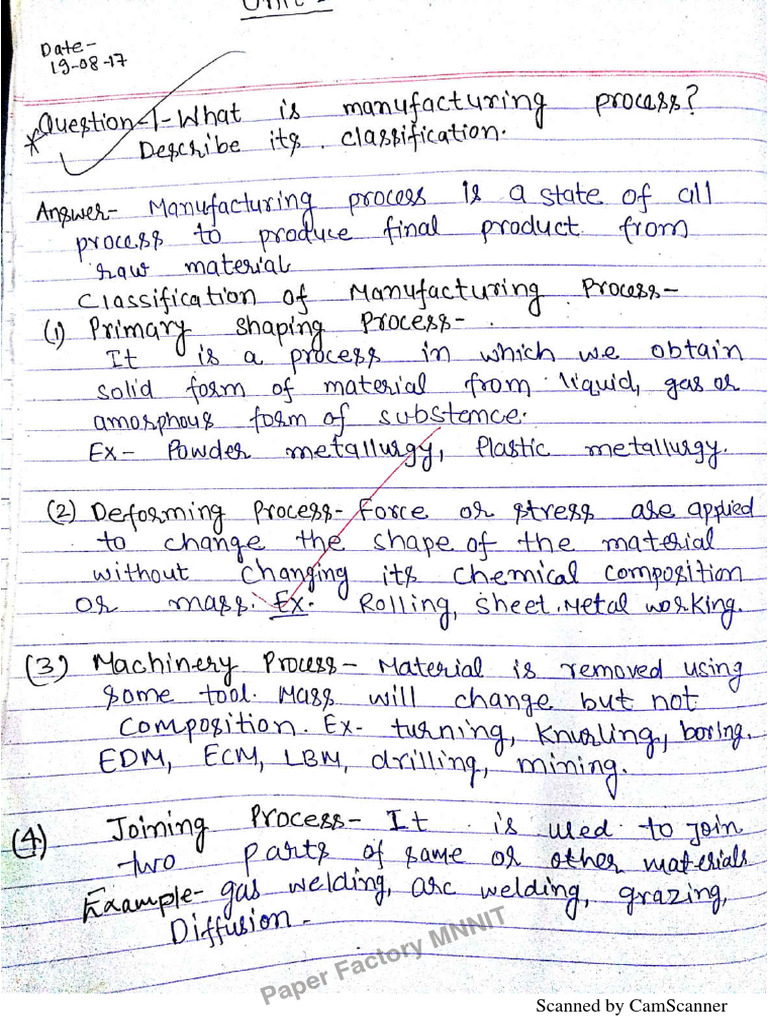 Date-
19-08-17
Question-1-What is manufacturing process?
Describe its classification.
Answer- Manufacturing process is a state of all
process to produce final product from
raw material
Classification of Manufacturing Process-
(1) Primary shaping Process-
It is a process in which we obtain
solid form of material from liquid, gas or
amorphous form of substence.
Ex- Powder metallurgy, Plastic metallurgy.
(2) Deforming Process- Force or stress are applied
to change the shape of the material
without changing its chemical composition
or mass. Ex- Rolling, sheet metal working.
(3) Machinery Process- Material is removed using
some tool. Mass will change but not
composition. Ex- turning, Knurling, boring.
EDM, ECM, LBM, drilling, mining.
(4) Joining Process- It is used to join
two parts of same or other materials
Example- gas welding, arc welding, grazing,
Diffusion-
Paper Factory MNNIT
Scanned by CamScanner